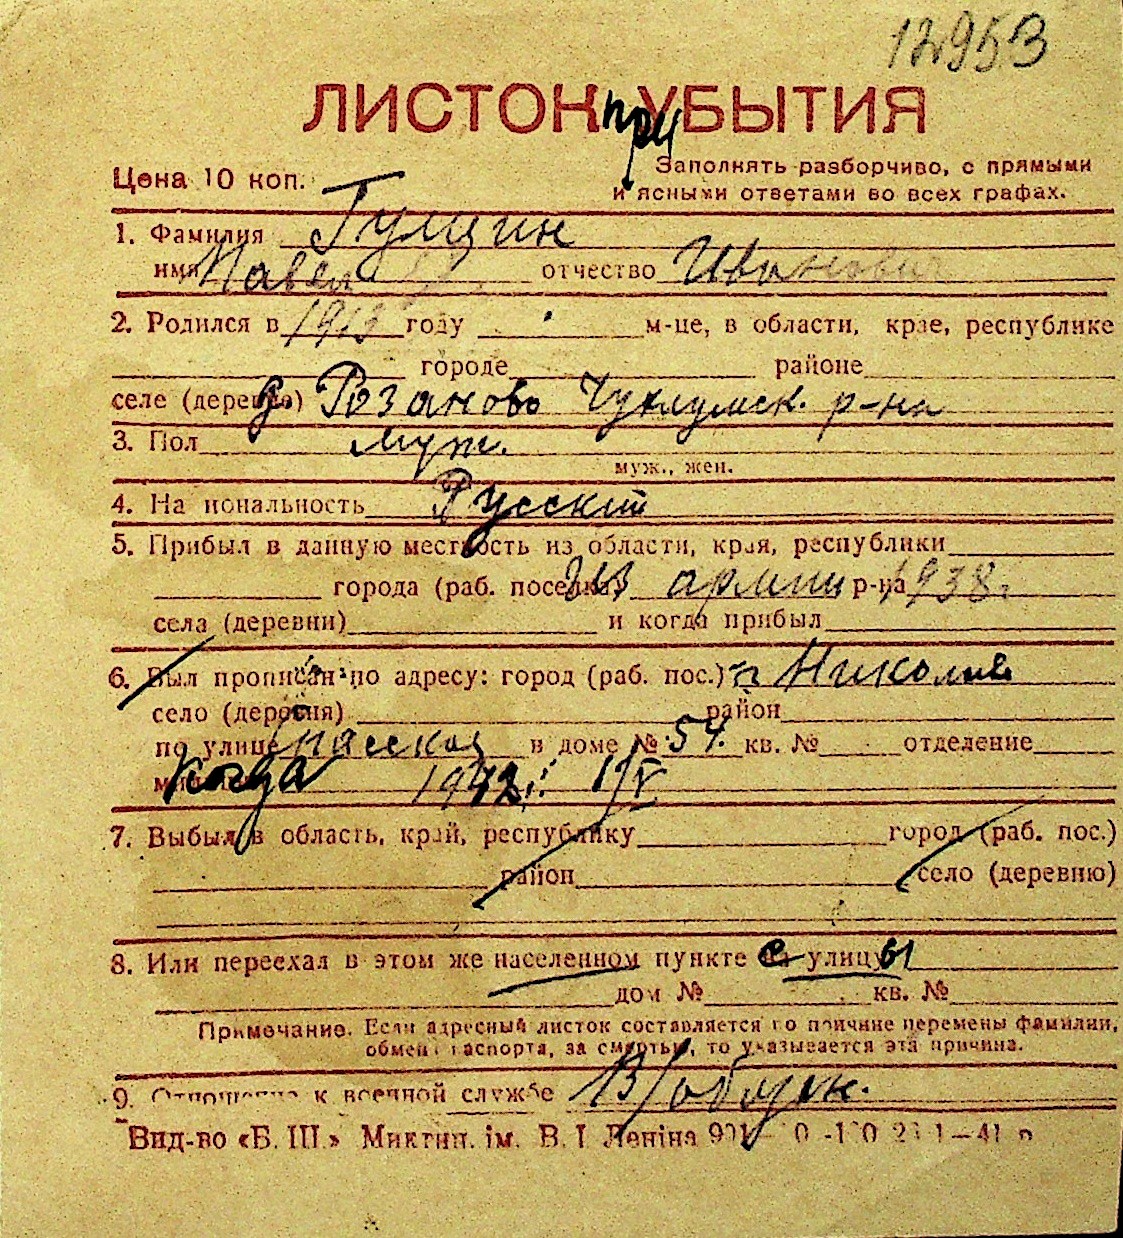 12953
ЛИСТОК при УБЫТИЯ
Цена 10 коп.
Заполнять разборчиво, с прямыми
и ясными ответами во всех графах.
1. Фамилия Гущин
имя Павел отчество Иванович
2. Родился в 1913 году м-це, в области, крае, республике
городе районе
селе (деревне) д. Розаново Чухломск. р-на
3. Пол муж.
муж., жен.
4. Национальность Русский
5. Прибыл в данную местность из области, края, республики
города (раб. поселка) из армии р-на 1938 г.
села (деревни) и когда прибыл
6. Был прописан по адресу: город (раб. пос.) г. Николаев
село (деревня) район
по улице Спасская в доме № 54. кв. № отделение
когда 1942 г. 1/V
7. Выбыл в область, край, республику город (раб. пос.)
район село (деревню)
8. Или переехал в этом же населенном пункте с улицы
дом № кв. №
Примечание. Если адресный листок составляется по причине перемены фамилии,
обмена паспорта, за смертью, то указывается эта причина.
9. Отношение к военной службе В/обязан.
Вид-во «Б. III.» ім. В. І. Леніна